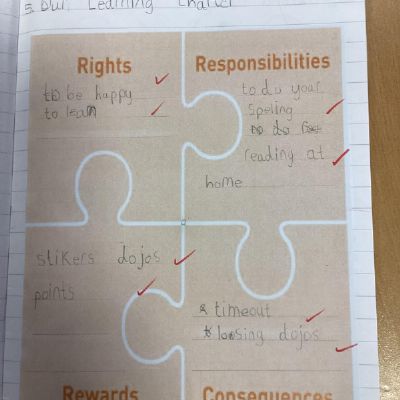 5. Our Learning Charter
Rights
to be happy
to learn
Responsibilities
to do your
Speling
to do
reading at
home
stikers dojos
points
timeout
loosing dojos
Rewards
Consequences